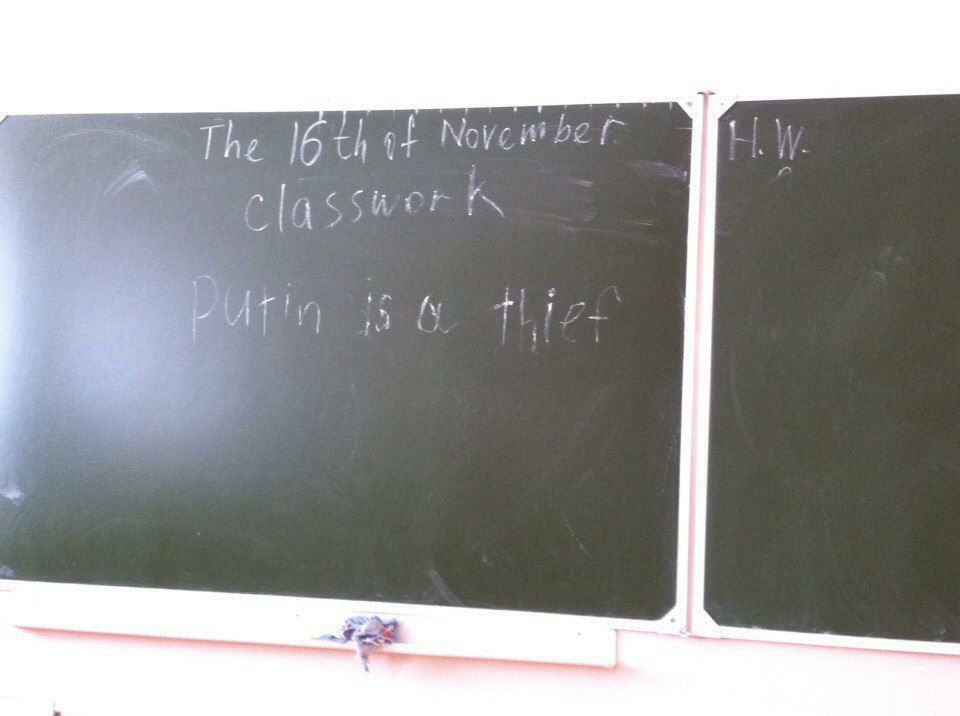 The 16th of November.
classwork
Putin is a thief
H.W.